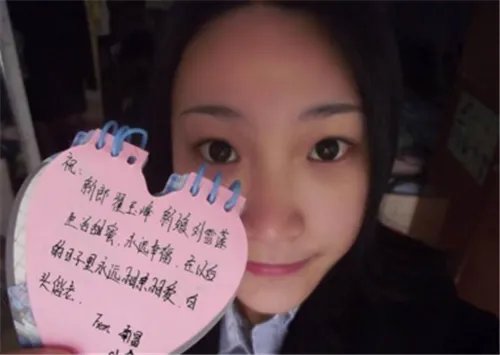 祝:
新郎 翟玉峰 新娘 刘雪莲
生活甜蜜、永远幸福、在以后
的日子里永远相亲相爱,白
头偕老.
From 南昌